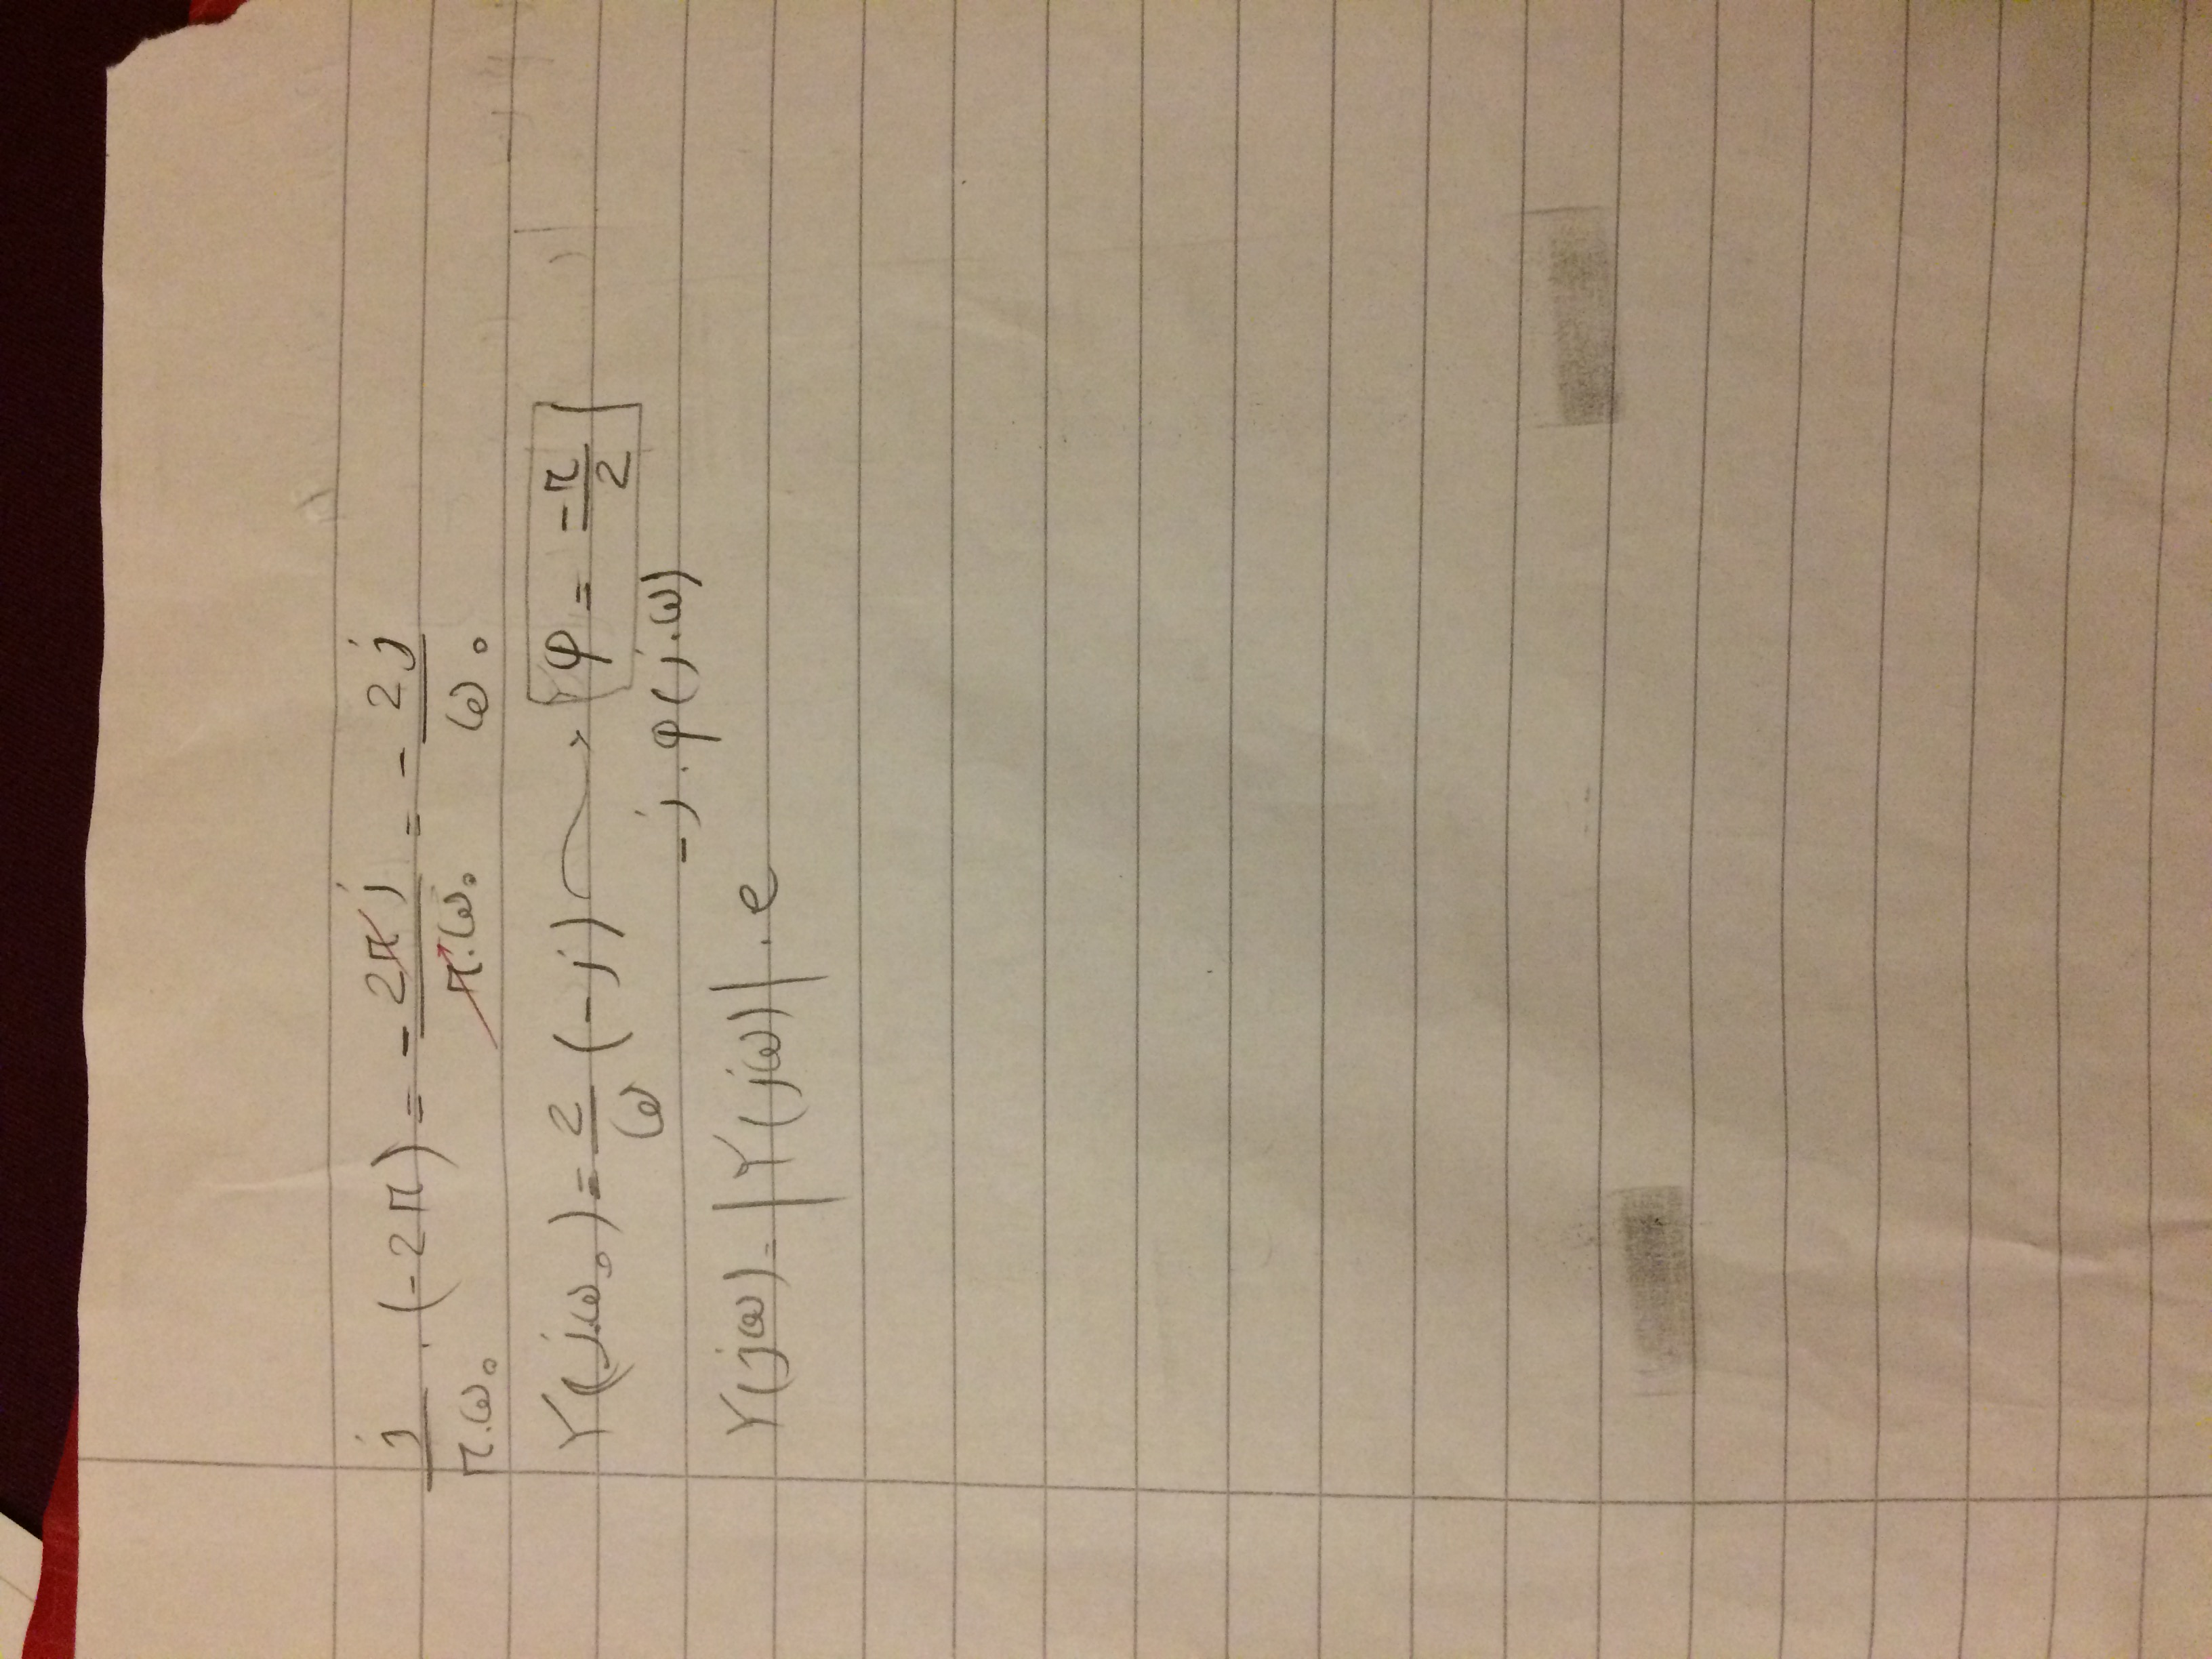 j/(π.ω₀) . (-2π) = - 2πj/(π.ω₀) = - 2j/ω₀
Y(j.ω₀) = 2/ω (-j) → φ = -π/2
Y(jω) = |Y(jω)| . e^(-j.φ(j.ω))